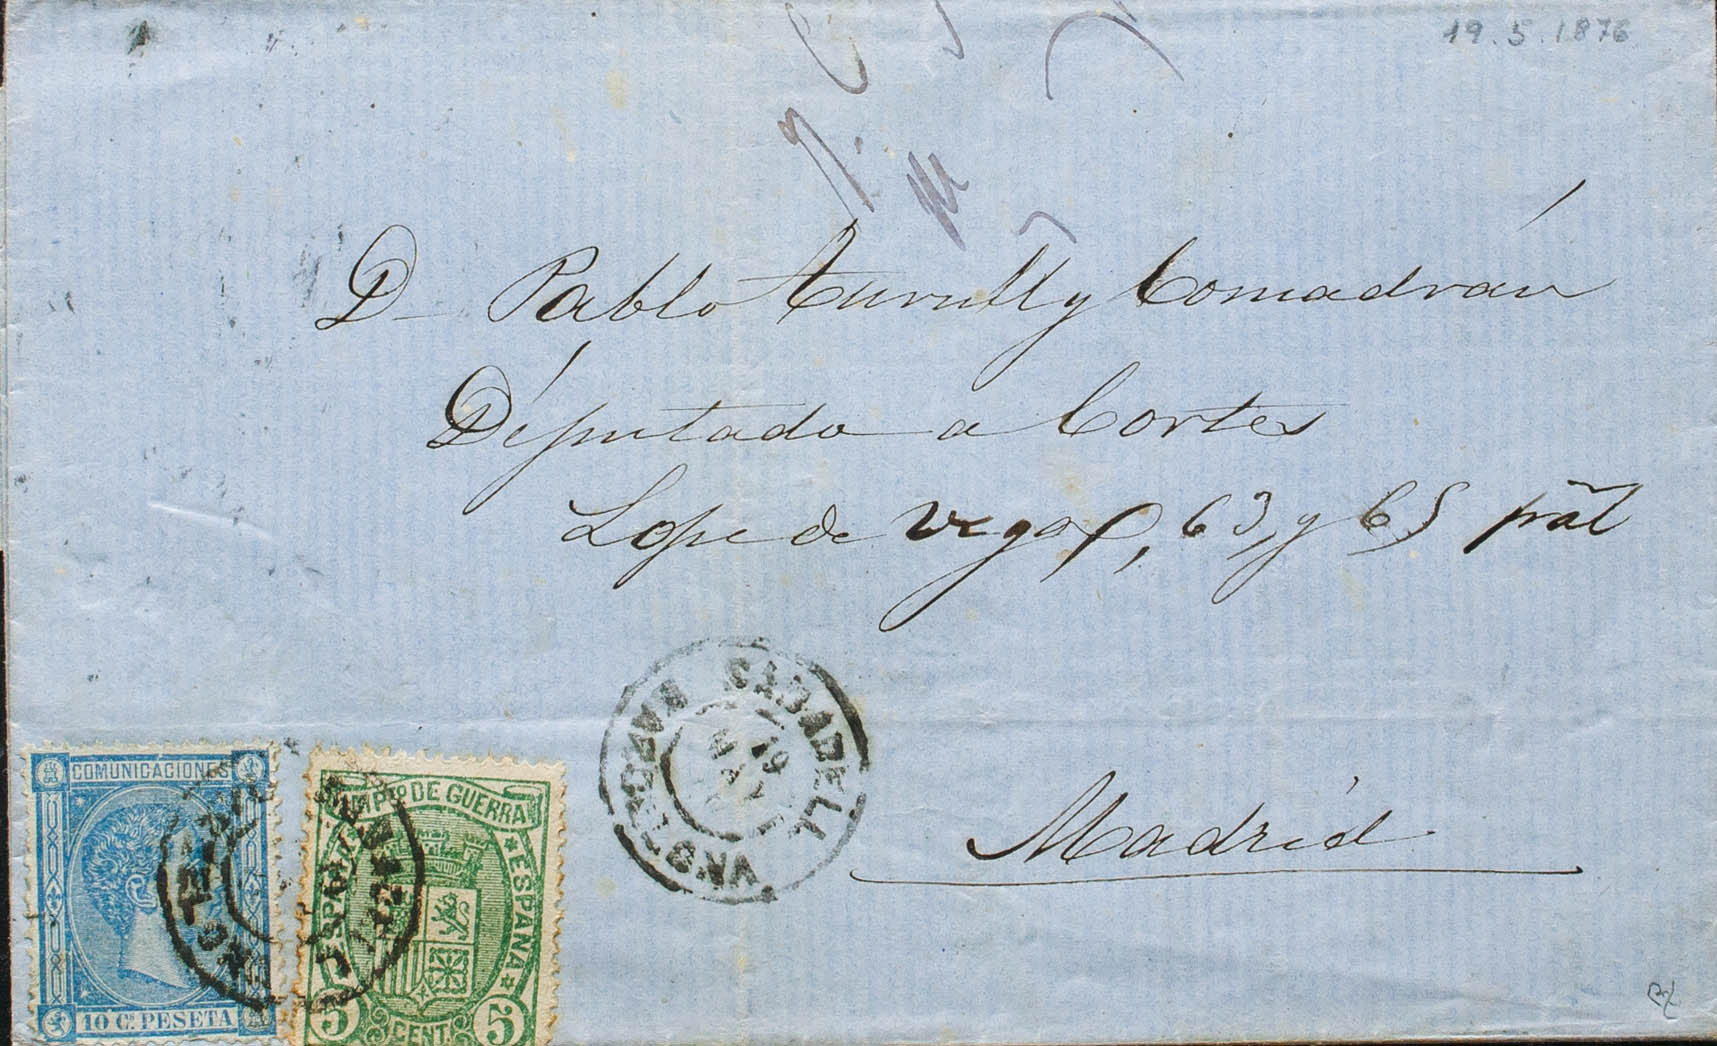 19.5.1876
D. Pablo Turull y Comadrán
Diputado a Cortes
Lope de Vega, 63, y 65 pral
Madrid
SABADELL
BARCELONA
19
COMUNICACIONES
10 Cs PESETA
IMPTO DE GUERRA
ESPAÑA
ESPAÑA
5 CENT. 5